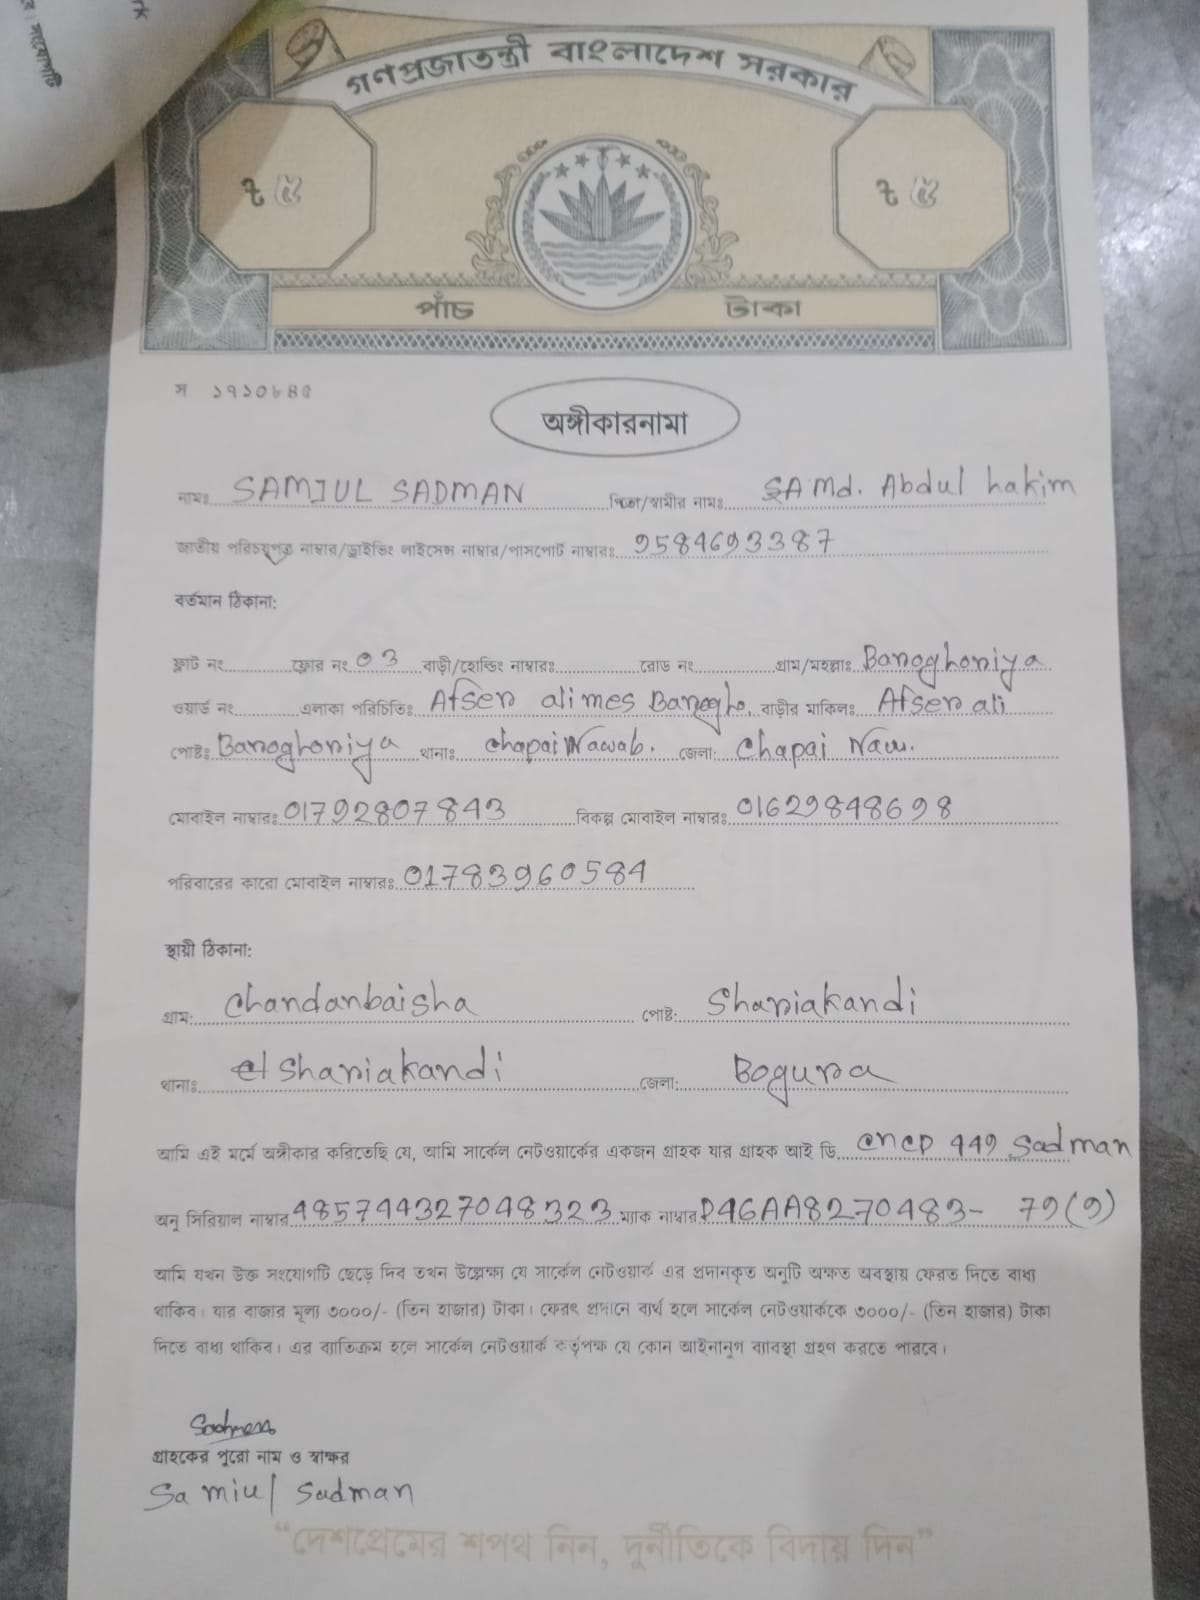 গণপ্রজাতন্ত্রী বাংলাদেশ সরকার
৳ ৫ ৳ ৫
পাঁচ টাকা
স ১৭১০৮৪৫
অঙ্গীকারনামা
নামঃ SAMIUL SADMAN পিতা/স্বামীর নামঃ Md. Abdul hakim
জাতীয় পরিচয়পত্র নাম্বার/ড্রাইভিং লাইসেন্স নাম্বার/পাসপোর্ট নাম্বারঃ 9584693387
বর্তমান ঠিকানা:
ফ্লাট নং ফ্লোর নং 03 বাড়ী/হোল্ডিং নাম্বারঃ রোড নং গ্রাম/মহল্লাঃ Baroghoriya
ওয়ার্ড নং এলাকা পরিচিতিঃ Afser ali mes Barogho. বাড়ীর মালিকঃ Afser ali
পোষ্টঃ Baroghoriya থানাঃ chapai Nawab. জেলা: Chapai Naw.
মোবাইল নাম্বারঃ 01792807843 বিকল্প মোবাইল নাম্বারঃ 01629848698
পরিবারের কারো মোবাইল নাম্বারঃ 01783960584
স্থায়ী ঠিকানা:
গ্রাম: Chandanbaisha পোষ্ট: Shariakandi
থানাঃ Shariakandi জেলা: Bogura
আমি এই মর্মে অঙ্গীকার করিতেছি যে, আমি সার্কেল নেটওয়ার্কের একজন গ্রাহক যার গ্রাহক আই ডি 449 Sadman
অনু সিরিয়াল নাম্বার 485744327048323 ম্যাক নাম্বার D46AA8270483- 79(9)
আমি যখন উক্ত সংযোগটি ছেড়ে দিব তখন উল্লেক্ষা যে সার্কেল নেটওয়ার্ক এর প্রদানকৃত অনুটি অক্ষত অবস্থায় ফেরত দিতে বাধ্য
থাকিব। যার বাজার মূল্য ৩০০০/- (তিন হাজার) টাকা। ফেরৎ প্রদানে ব্যর্থ হলে সার্কেল নেটওয়ার্ককে ৩০০০/- (তিন হাজার) টাকা
দিতে বাধ্য থাকিব। এর ব্যতিক্রম হলে সার্কেল নেটওয়ার্ক কর্তৃপক্ষ যে কোন আইনানুগ ব্যাবস্থা গ্রহণ করতে পারবে।
Sadman
গ্রাহকের পুরো নাম ও স্বাক্ষর
Samiul Sadman
“দেশপ্রেমের শপথ নিন, দুর্নীতিকে বিদায় দিন”